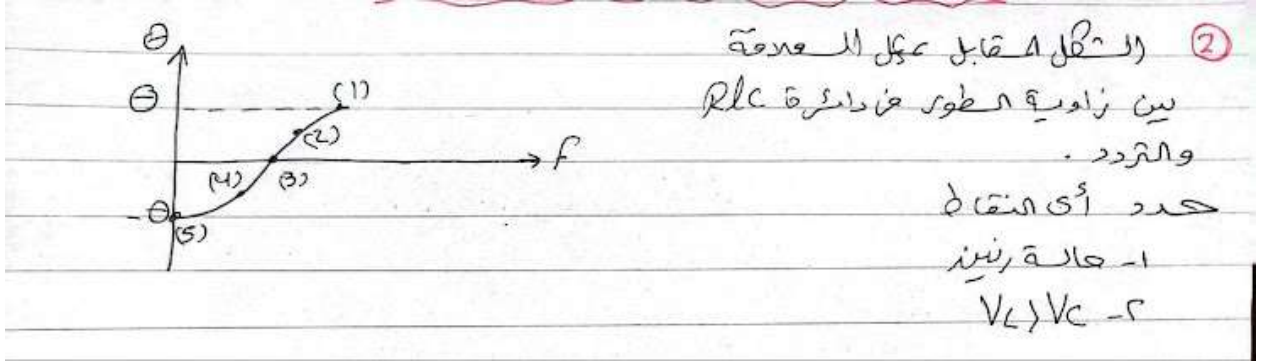 ② الشكل المقابل يمثل العلاقة
بين زاوية الطور فى دائرة RLC
والتردد .
حدد أى النقاط
١- حالة رنين
٢- VL > VC
θ
θ
(1)
(2)
f
(4)
(3)
-θ
(5)